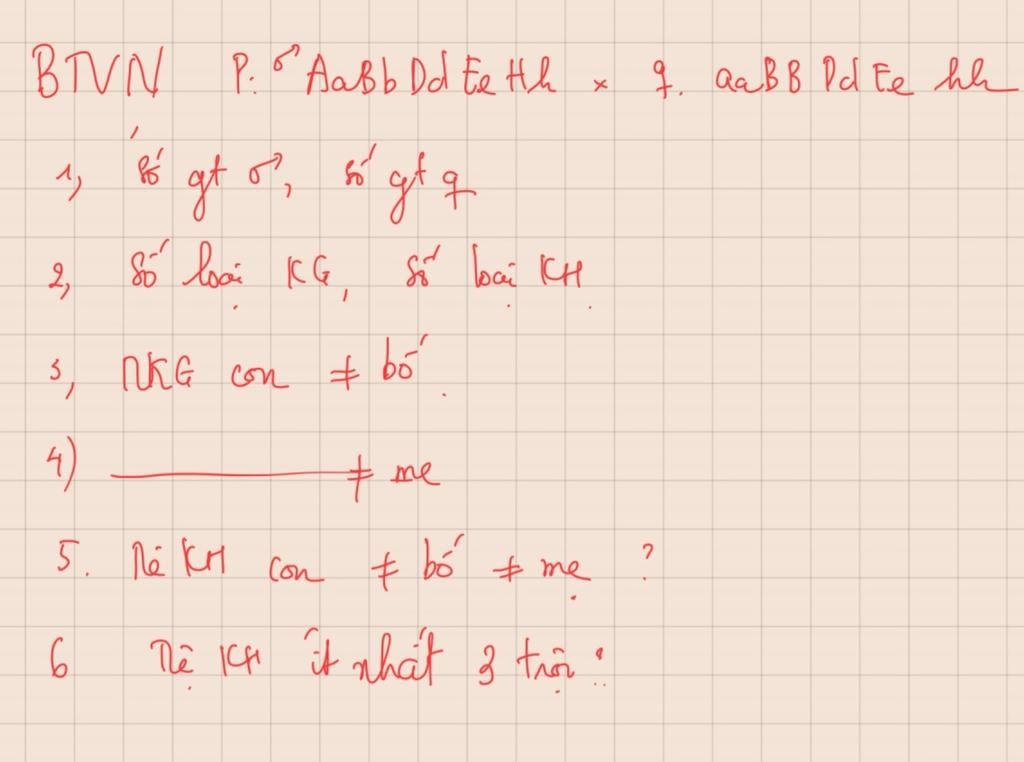 BTVN P: ♂ AaBbDdEeHh × ♀. aaBB Dd Ee hh
1, số gt ♂, số gt ♀
2, Số loại KG, số loại KH.
3, TLKG con ≠ bố.
4) ≠ mẹ
5. Tỉ lệ KH con ≠ bố ≠ mẹ ?
6 Tỉ lệ KH ít nhất 3 trội :